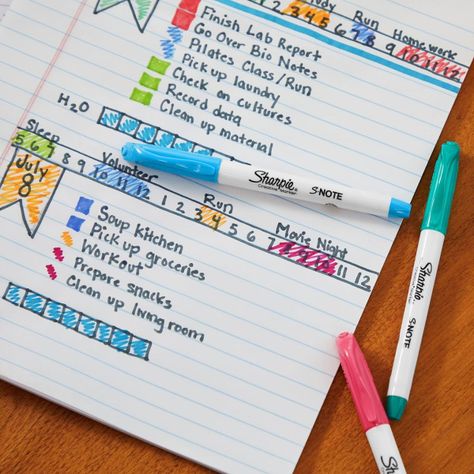 Run Homework
7 8 9 10 11 12
Finish Lab Report
Go Over Bio Notes
Pilates Class/Run
Pick up laundry
Check on cultures
Record data
Clean up material
H2O
Sleep Volunteer Run Movie Night
5 6 7 8 9 10 11 12 1 2 3 4 5 6 7 8 9 10 11 12
July
8
Soup kitchen
Pick up groceries
Workout
Prepare snacks
Clean up living room
Sharpie S·NOTE
Creative Marker
Sharpie S·NOTE
Sharpie